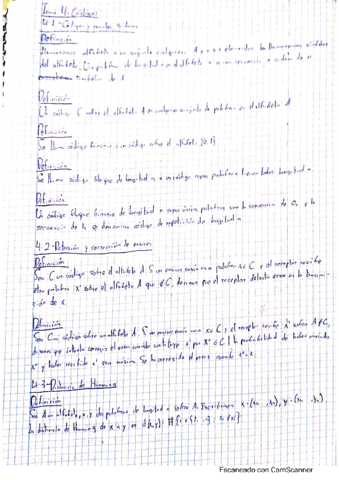 Tema 4: Códigos
4.1-Códigos y
Definición
Llamaremos alfabeto a un conjunto cualquiera A y a sus elementos los llamaremos símbolos
del alfabeto. Una palabra de longitud n en el alfabeto es una secuencia o cadena de n
símbolos de A
Definición
Un código C sobre el alfabeto A es cualquier conjunto de palabras en el alfabeto A
Definición
Se llama código binario a un código sobre el alfabeto {0,1}
Definición
Se llama código bloque de longitud n a un código cuyas palabras tienen todas longitud n
Definición
Un código bloque binario de longitud n cuyas únicas palabras son la secuencia de 0s y la
secuencia de 1s se denomina código de repetición de longitud n
4.2-Detección y corrección de errores
Definición
Sea C un código sobre el alfabeto A. Si un emisor envía una palabra x∈C y el receptor recibe
otra palabra x' sobre el alfabeto A que ∉C, decimos que el receptor detecta error en la transmi-
sión de x.
Definición
Sea C un código sobre un alfabeto A. Si un emisor envía una x∈C y el receptor recibe x' sobre A ∉C,
x'' y haber recibido x' sea máxima. Se ha corregido el error cuando x''=x.
4.3-Distancia de Hamming
Definición
Sea A un alfabeto, x, y dos palabras de longitud n sobre A.
La distancia de Hamming de x a y es d(x,y)=
Escaneado con CamScanner